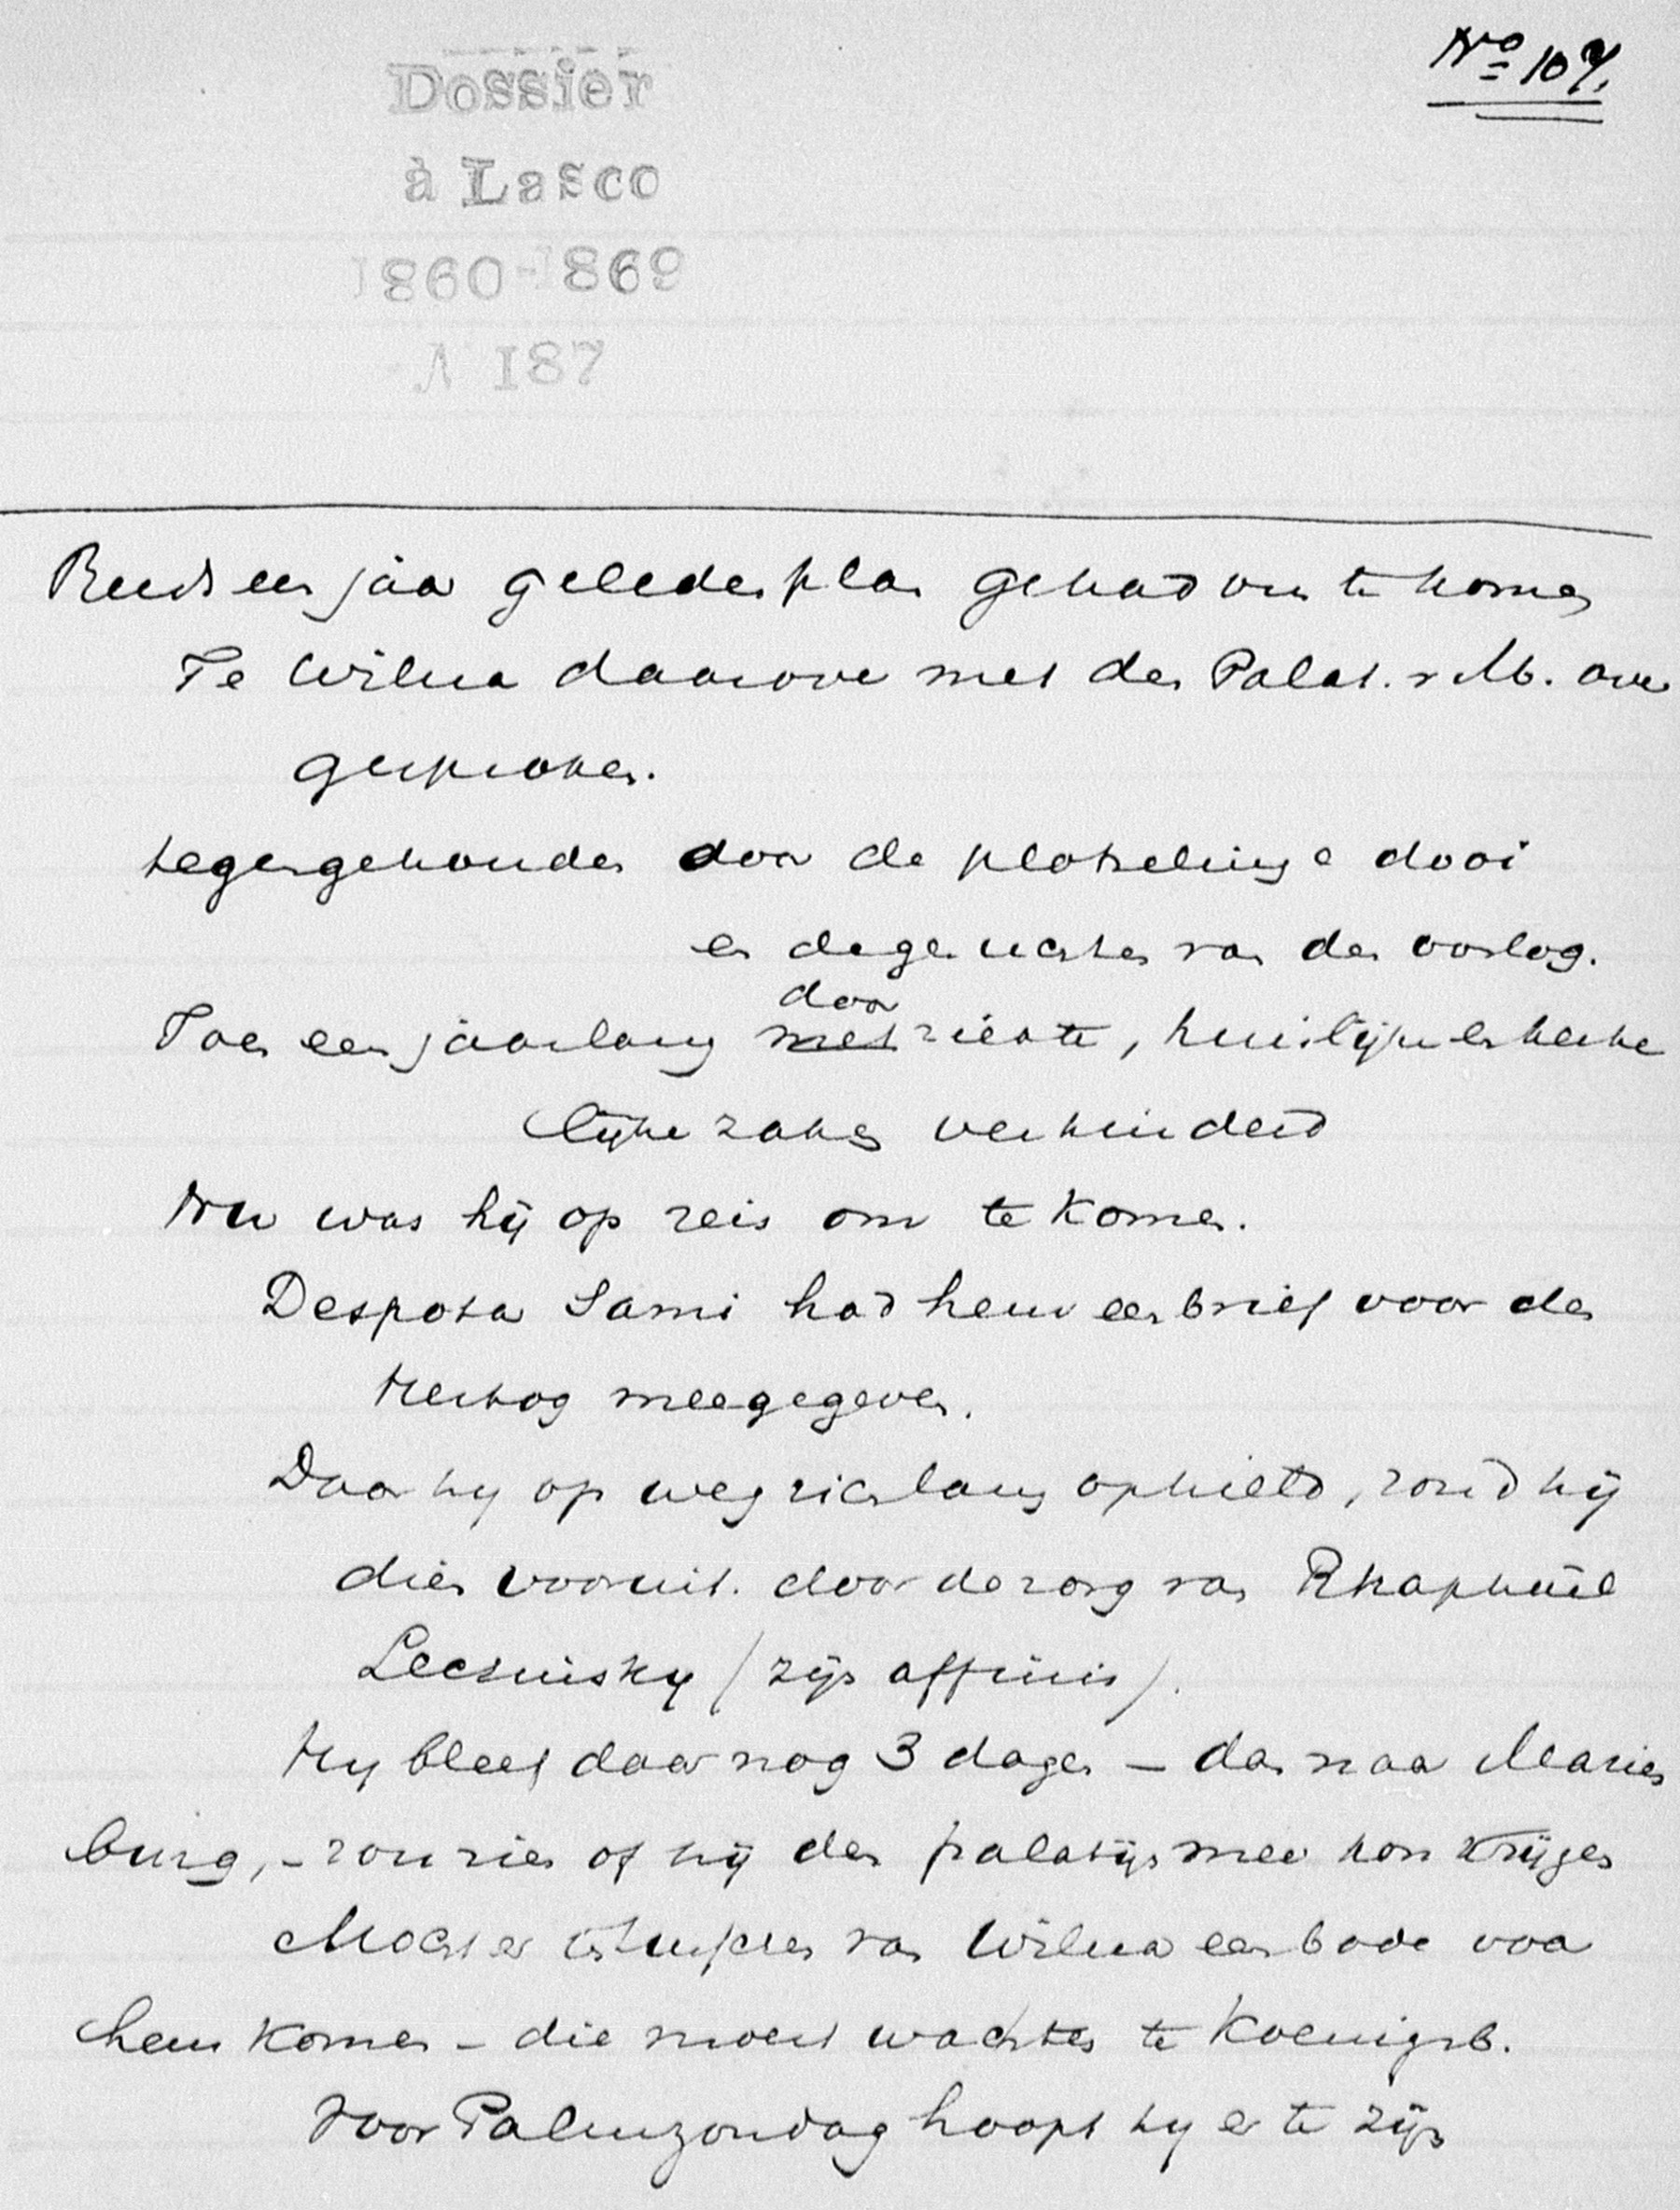 No 107.
Dossier
à Lasco
1860-1869
N 187
Reeds een jaar geleden plan gehad om te komen
Te Wilna daarover met den Palat. v M. over
gesproken.
tegengehouden door de plotselinge dooi
en de geruchten van den oorlog.
door
Toen een jaar lang met ziekte, huislijke en kerke
lijke zaken verhinderd
Nu was hij op reis om te komen.
Despota Sami had hem een brief voor den
Hertog meegegeven.
Daar hy op weg zich lang ophield, zond hij
dien vooruit. door de zorg van Rhaphaël
Lecsinsky (zijn affinis).
Hy bleef daar nog 3 dagen – dan naar Marien
burg, – zou zien of hij den palatijn mee kon krijgen
Mocht er van Wilna een bode voor
hem komen – die moest wachten te Koenigsb.
Voor Palmzondag hoopt hy er te zijn